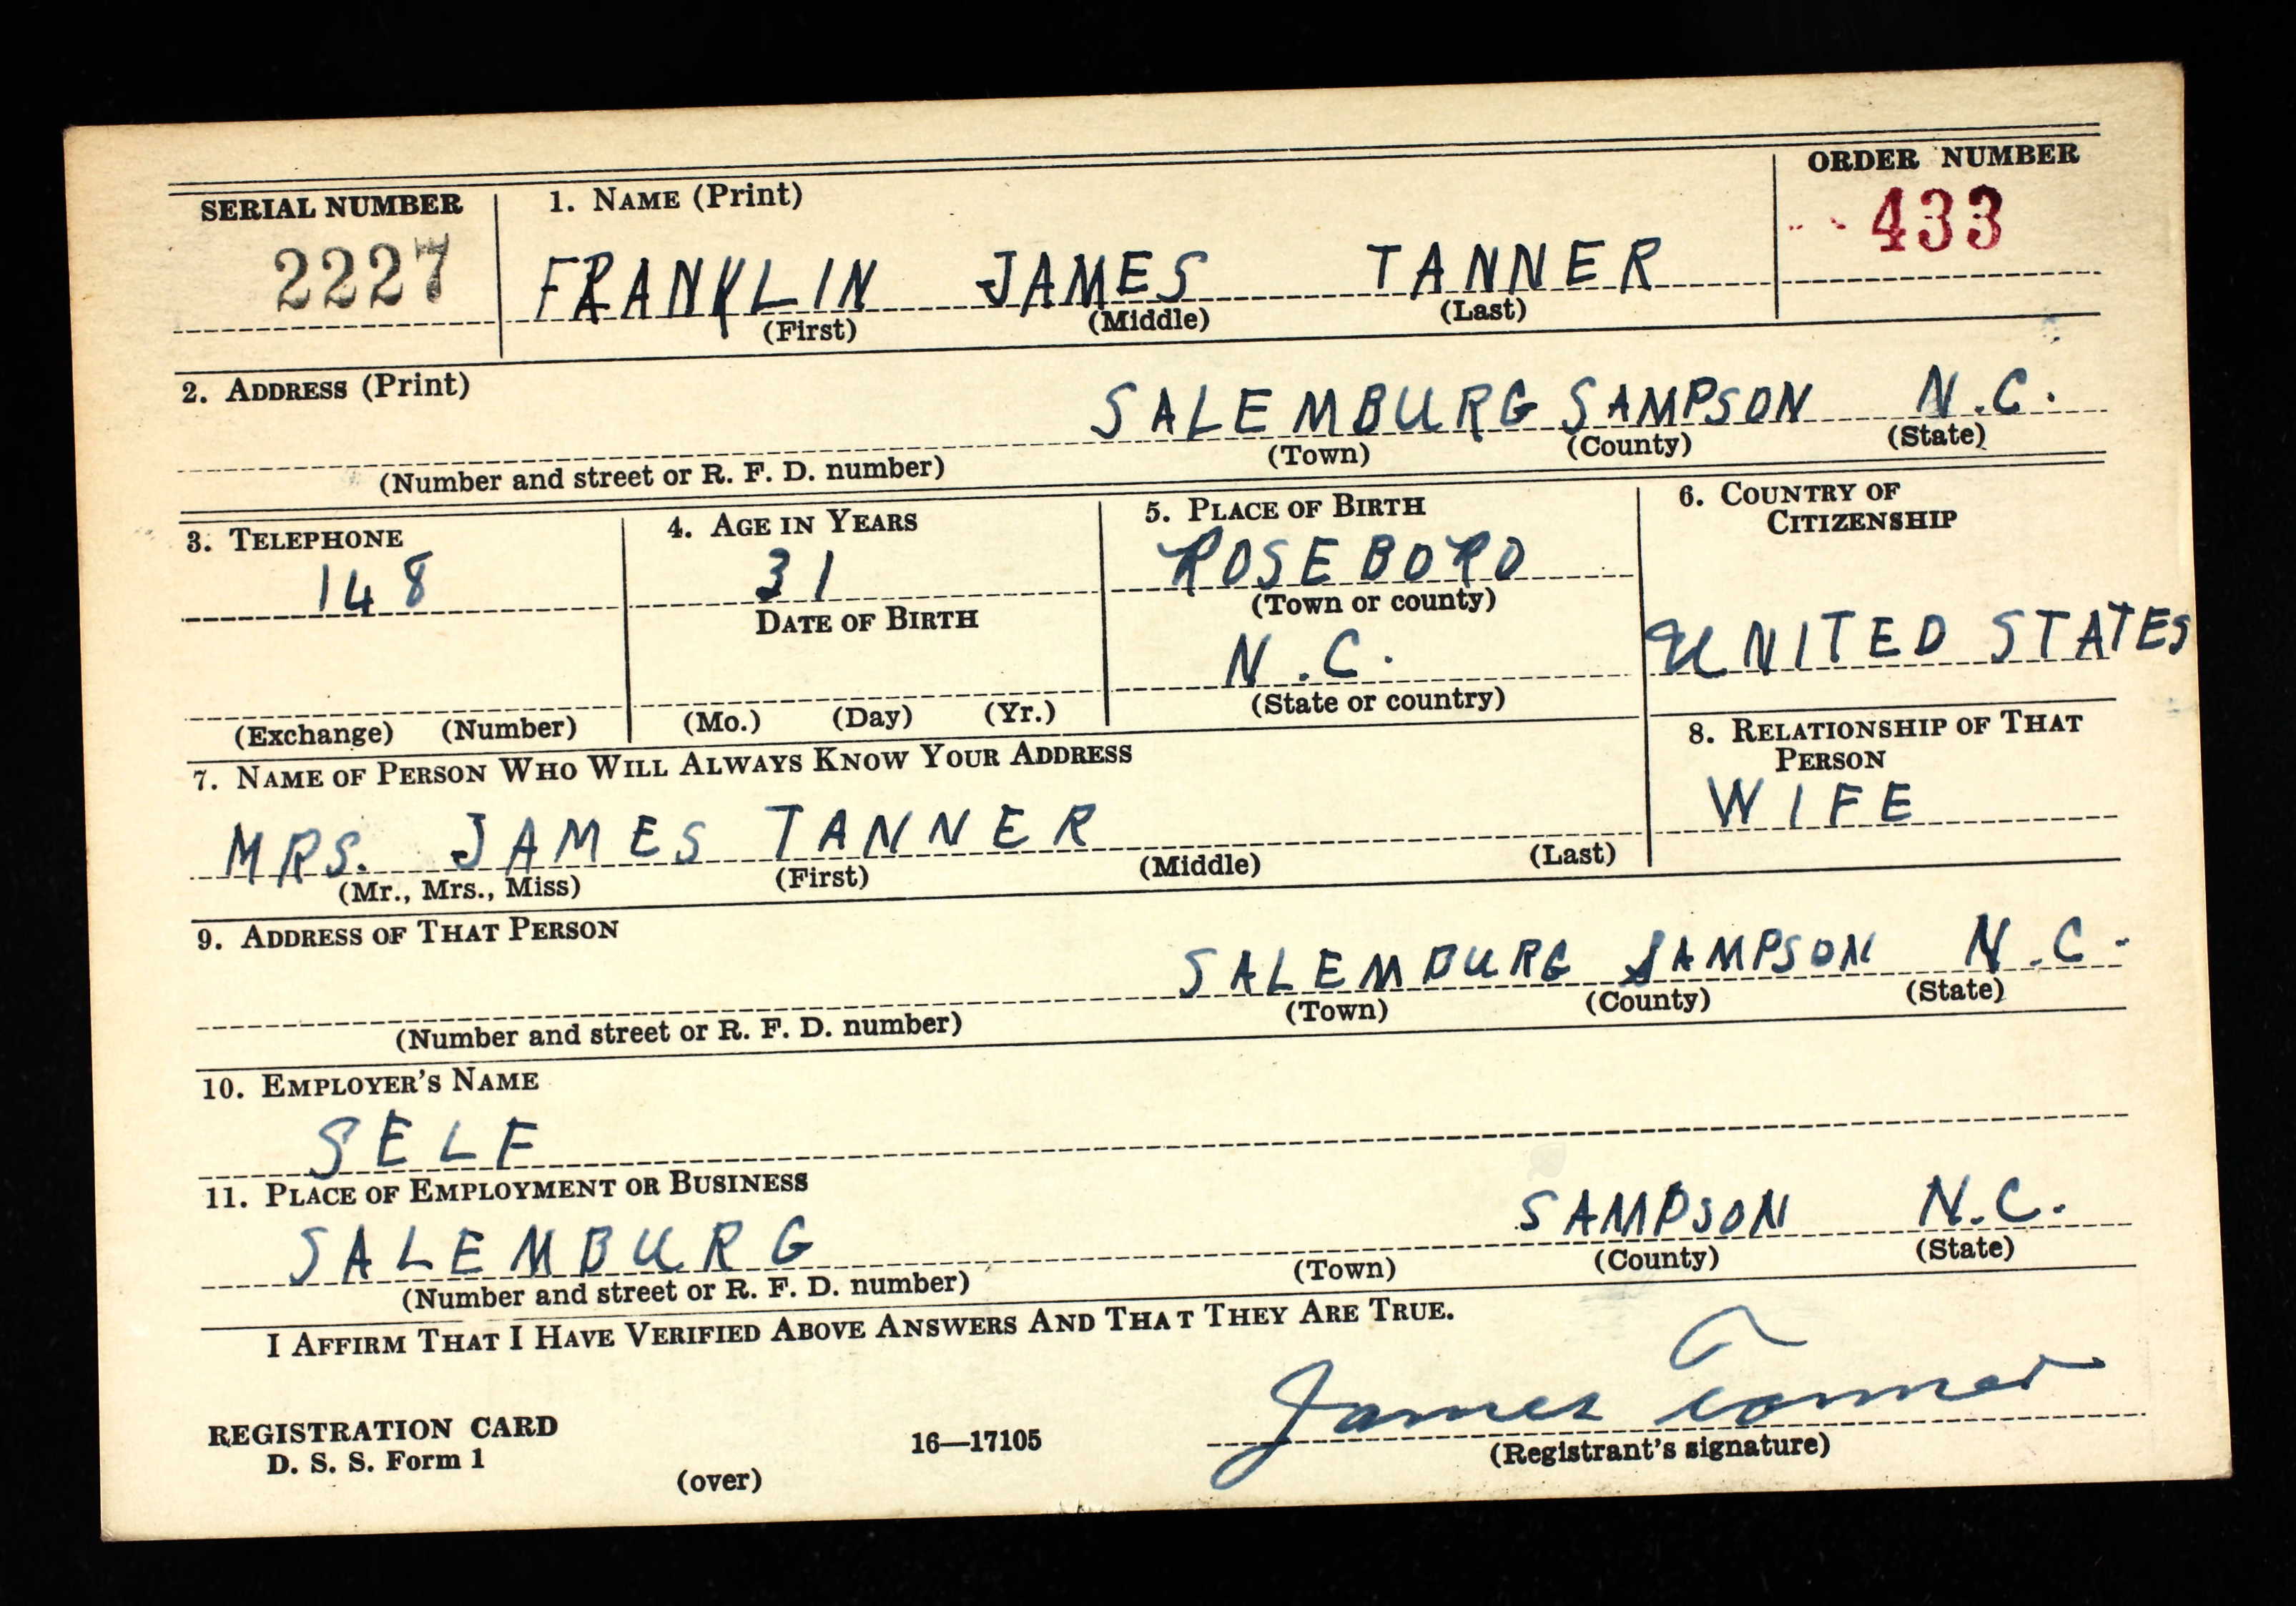 SERIAL NUMBER 1. NAME (Print) ORDER NUMBER
2227 FRANKLIN JAMES TANNER 433
(First) (Middle) (Last)
2. ADDRESS (Print)
SALEMBURG SAMPSON N.C.
(Number and street or R. F. D. number) (Town) (County) (State)
3. TELEPHONE 4. AGE IN YEARS 5. PLACE OF BIRTH 6. COUNTRY OF
CITIZENSHIP
148 31 ROSEBORO
DATE OF BIRTH (Town or county)
N.C. UNITED STATES
(Exchange) (Number) (Mo.) (Day) (Yr.) (State or country)
7. NAME OF PERSON WHO WILL ALWAYS KNOW YOUR ADDRESS 8. RELATIONSHIP OF THAT
PERSON
MRS. JAMES TANNER WIFE
(Mr., Mrs., Miss) (First) (Middle) (Last)
9. ADDRESS OF THAT PERSON
SALEMBURG SAMPSON N.C.
(Number and street or R. F. D. number) (Town) (County) (State)
10. EMPLOYER'S NAME
SELF
11. PLACE OF EMPLOYMENT OR BUSINESS
SALEMBURG SAMPSON N.C.
(Number and street or R. F. D. number) (Town) (County) (State)
I AFFIRM THAT I HAVE VERIFIED ABOVE ANSWERS AND THAT THEY ARE TRUE.
James Tanner
REGISTRATION CARD 16—17105 (Registrant's signature)
D. S. S. Form 1
(over)